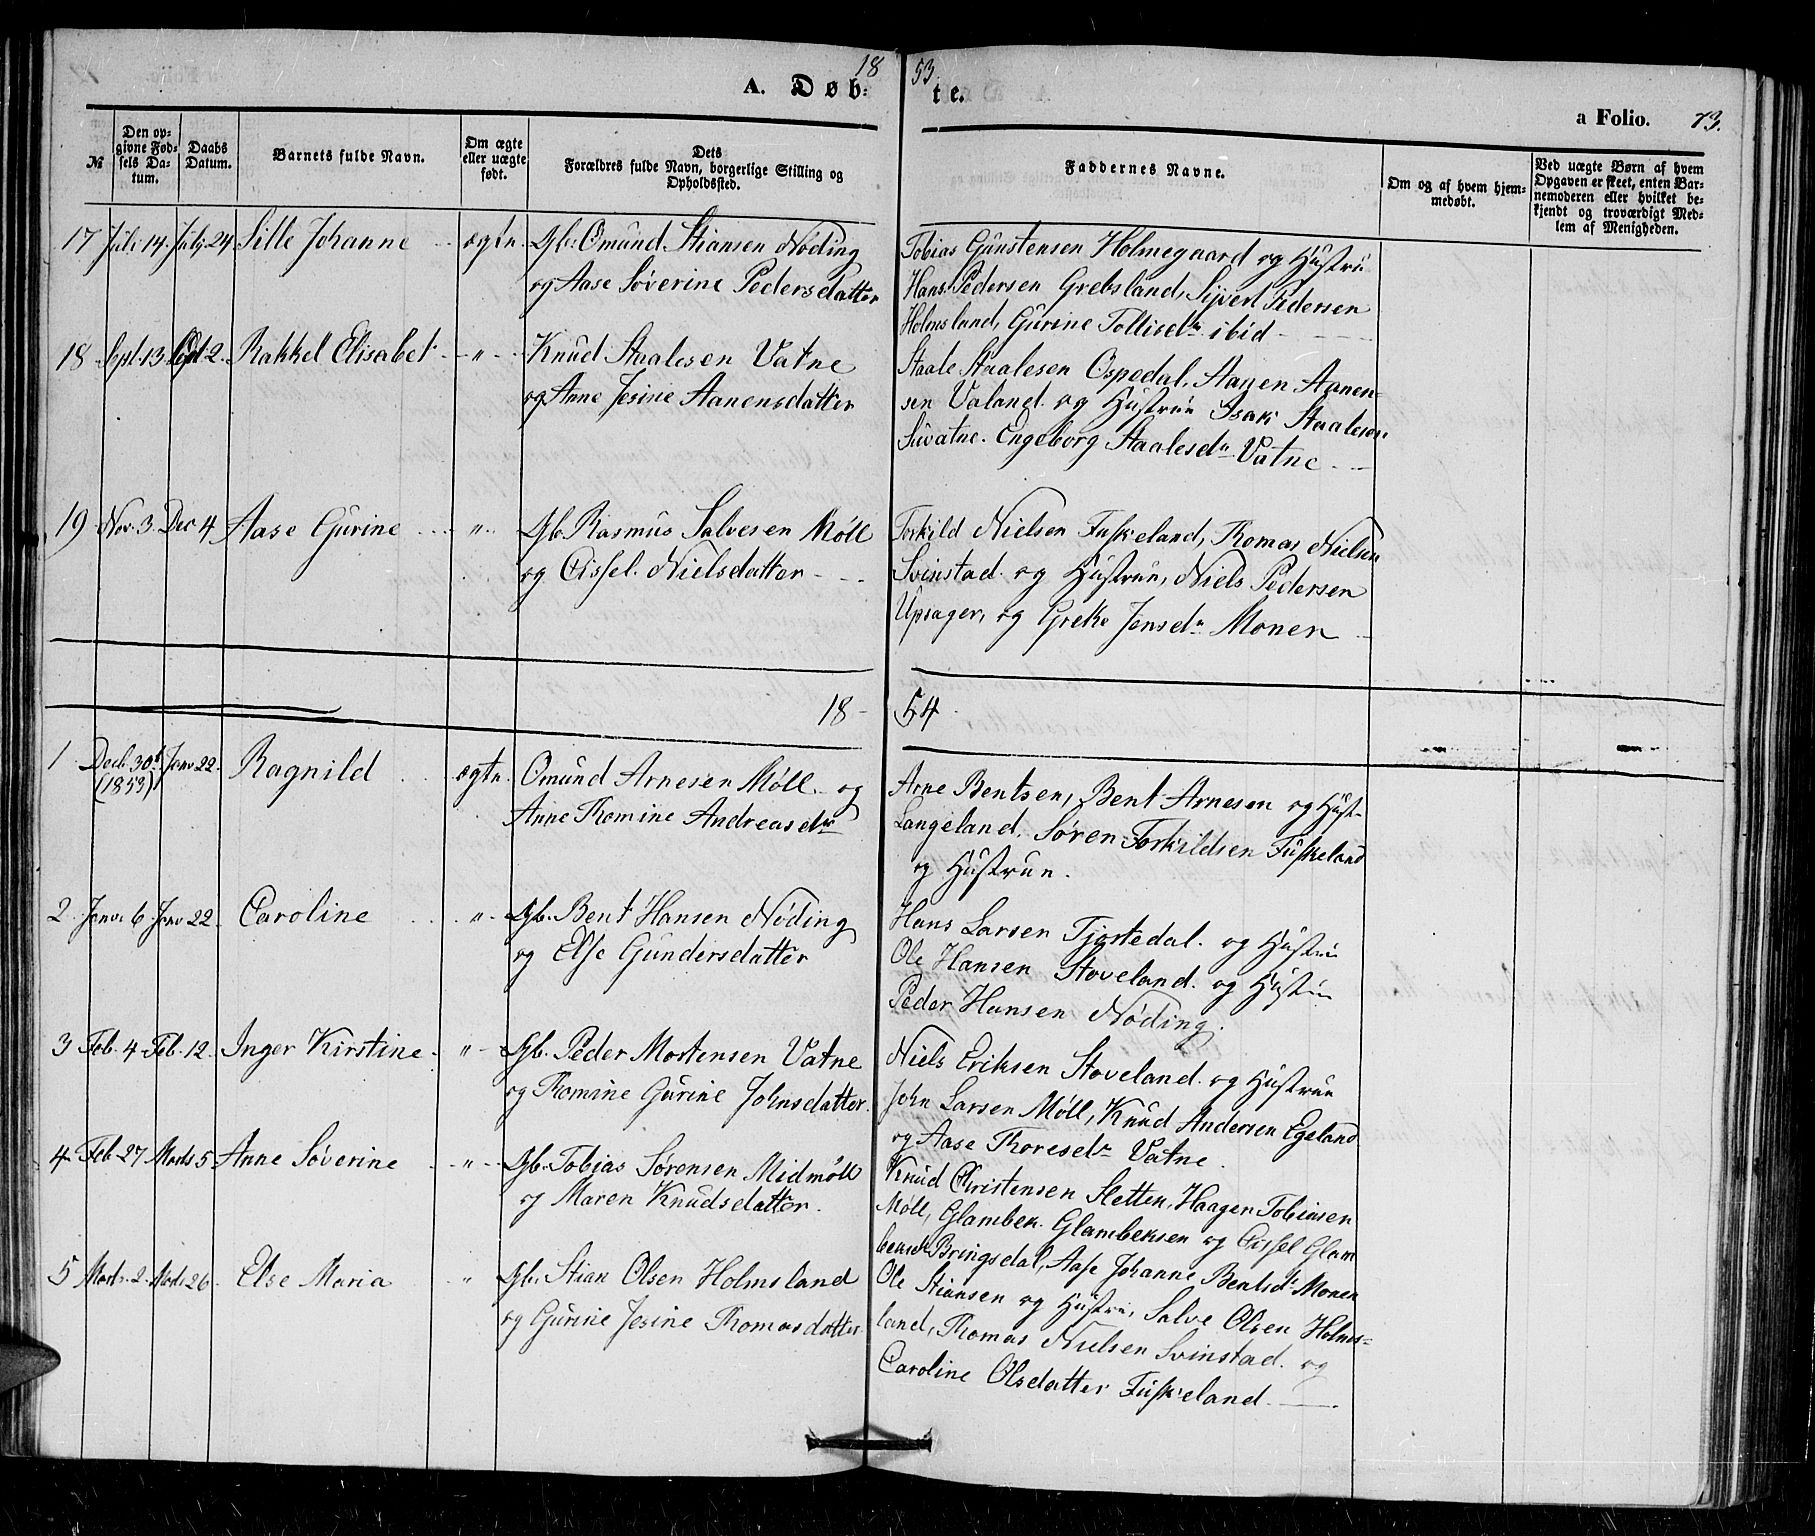 1853
A. Døbte.
a Folio. 73.
№
Den opgivne Fødsels Datum.
Daabs Datum.
Barnets fulde Navn.
Om ægte eller uægte født.
Dets Forældres fulde Navn, borgerlige Stilling og Opholdssted.
Faddernes Navne.
Om og af hvem hjemmedøbt.
Ved uægte Børn af hvem Opgaven er skeet, enten Barnemoderen eller hvilket bekjendt og troværdigt Medlem af Menigheden.
17 Juli 14. Juli 24 Sille Johanne ægte. Gb. Omund Stiansen Nøding
og Aase Søverine Pedersdatter
Tobias Gunstensen Holmegaard og Hustru
Hans Pedersen Grebsland, Sjivert Pedersen
Holmsland, Gurine Tollisdr ibid
18 Sept. 13 Oct 2. Rakkel Elisabet " Knud Staalesen Vatne
og Anne Jesine Aanensdatter
Staale Staalesen Ospedal, Aanen Aanen-
sen Valand og Hustrue Isak Staalesen
Suvatne. Engeborg Staalesdr Vatne
19 Nov. 3. Dec 4 Aase Gurine " Gb. Rasmus Salvesen Møll
og Cissel Nielsdatter
Torkild Nielsen Fuskeland, Thomas Nielsen
Svinstad og Hustrue, Niels Pedersen
Upsager, og Grethe Jensdr Monen
1854
1 Decb. 30t (1853) Janv 22. Ragnild ægte. Omund Arnesen Møll og
Anne Thomine Andreasdr
Arne Bentsen, Bent Arnesen og Hust-
Langeland. Søren Torkildsen Fuskeland
og Hustrue.
2. Janv. 6. Janv 22. Caroline " Gb. Bent Hansen Nøding
og Else Gundersdatter
Hans Larsen Tjostedal. og Hustru
Ole Hansen Stoveland. og Hustru
Peder Hansen Nøding.
3 Feb. 4 Feb. 12. Inger Kirstine " Gb. Peder Mortensen Vatne
og Thomine Gurine Johnsdatter.
Niels Eriksen Stoveland og Hustrue
John Larsen Møll, Knud Andersen Egeland
og Aase Thoresdr Vatne.
4 Feb 27 Marts 5 Anne Søverine " Gb. Tobias Sørensen Midmøll
og Maren Knudsdatter.
Knud Christensen Sletten, Haagen Tobiasen
Møll, Glambek Glambeksen og Cissel Glam
beksdr Bringsdal, Aase Johanne Bentsdr Monen
5 Marts 2 Marts 26 Else Maria " Gb. Stian Olsen Holmsland
og Gurine Jesine Thomasdatter
Ole Stiansen og Hustru, Salve Olsen Holms-
land, Thomas Nielsen Svinstad. og
Caroline Olsdatter Fuskeland.